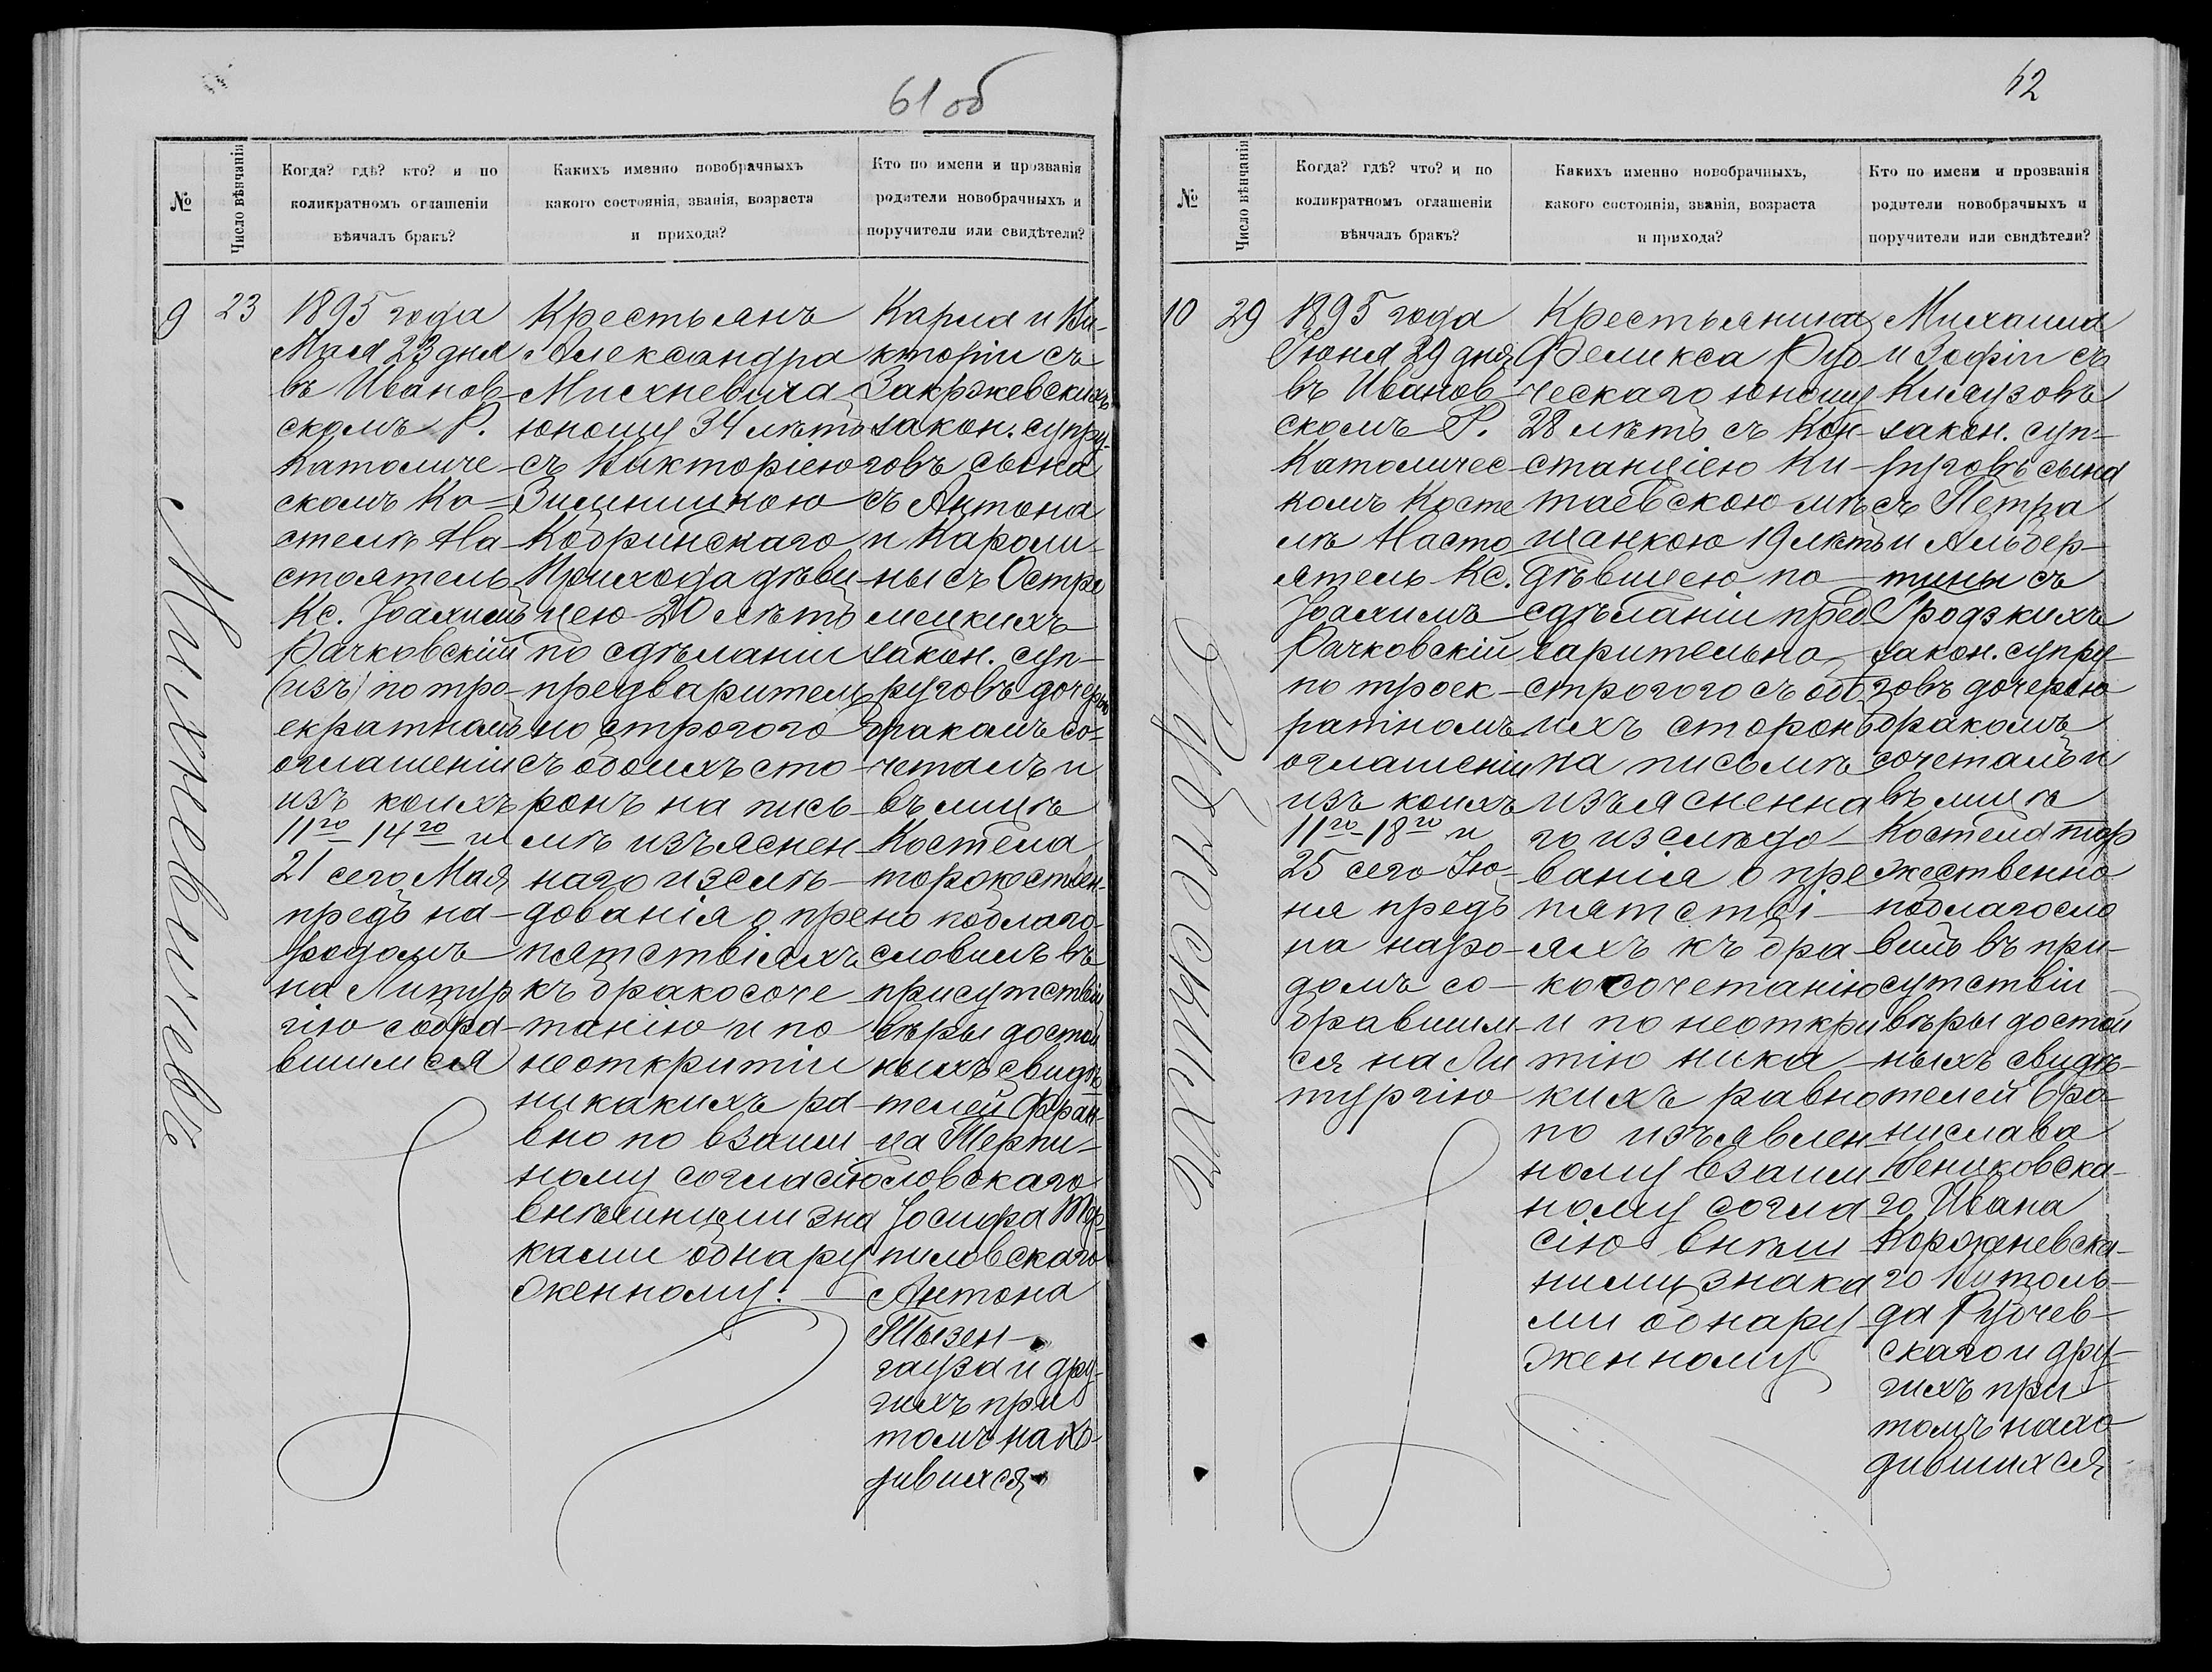 61 об
№
Число вѣнчанія
Когда? гдѣ? кто? и по
коликратномъ оглашеніи
вѣнчалъ бракъ?
Какихъ именно новобрачныхъ
какого состоянія, званія, возраста
и прихода?
Кто по имени и прозванія
родители новобрачныхъ и
поручители или свидѣтели?
9
23
Михневичъ
1895 года
Мая 23 дня
въ Иванов-
скомъ Р.
Католиче-
скомъ Ко-
стелѣ На-
стоятель
Кс. Іоахимъ
Рачковскій
(изъ) по тро-
екратномъ
оглашеніи
изъ коихъ
11го 14го и
21 сего Мая
предъ на-
родомъ
на Литур
гію собра-
вшимся
Крестьянъ
Александра
Михневича
юношу 34 лѣтъ
съ Викторіею
Кобринскаго
Прихода дѣви-
цею 20 лѣтъ
по сдѣланіи
предварители
но строгого
съ обоихъ сто-
ронъ на пись-
мѣ изъяснен-
наго изслѣ-
дованія о пре
пятствіяхъ
къ бракосоче
танію и по
неоткритіи
никакихъ ра-
вно по взаим
ному согласію
внѣшними зна
ками обнару
женному.
Карла и Ви-
кторіи съ
Закржевскихъ
закон. супру-
говъ сына
съ Антона
и Кароли-
ны съ Остро
мецкихъ
закон. суп-
руговъ дочерью
бракомъ со-
четалъ и
въ лицѣ
Костела
торжествен-
но поблаго-
словилъ въ
присутствіи
вѣры достой
ныхъ свидѣ
телей Фран-
ца Терпи-
ловскаго
Іосифа Тер-
пиловскаго
Антона
Тызен-
гауза и дру-
гихъ при
томъ нахо-
дившихся
62
№
Число вѣнчанія
Когда? гдѣ? что? и по
коликратномъ оглашеніи
вѣнчалъ бракъ?
Какихъ именно новобрачныхъ,
какого состоянія, званія, возраста
и прихода?
Кто по имени и прозванія
родители новобрачныхъ и
поручители или свидѣтели?
10
29
1895 года
Іюня 29 дня
въ Иванов-
скомъ Р.
Католичес-
комъ Косте
лѣ Насто-
ятель Кс.
Іоахимъ
Рачковскій
по троек-
ратномъ
оглашеніи
изъ коихъ
11го 18го и
25 сего Ію-
ня предъ
на наро-
домъ со-
бравшим-
ся на Ли
тургію
Крестьянина
Феликса Руб
ческаго юношу
28 лѣтъ съ Кон-
станціею Ки-
таевскою мѣ
щанкою 19 лѣтъ
дѣвицею по
сдѣланіи пред
варительно
строгого съ обо
ихъ сторонъ
на письмѣ
изъясненна
го изслѣдо-
ванія о пре
пятстві-
яхъ къ бра-
косочетанію
и по неоткри
тію ника-
кихъ равно
по изъявлен-
ному взаим-
ному согла
сію внѣш-
ними знака
ми обнару-
женному
Михаила
и Зофіи съ
закон. суп-
руговъ сына
съ Петра
и Альбер-
тины съ
Гродзкихъ
закон. супру-
говъ дочерью
бракомъ
сочеталъ и
въ лицѣ
Костела тор
жественно
поблагосло
вилъ въ при-
сутствіи
вѣры достой
ныхъ свидѣ-
телей Бро-
нислава
го Ивана
го Витоль-
да Рубчев-
скаго и дру-
гихъ при
томъ нахо
дившихся